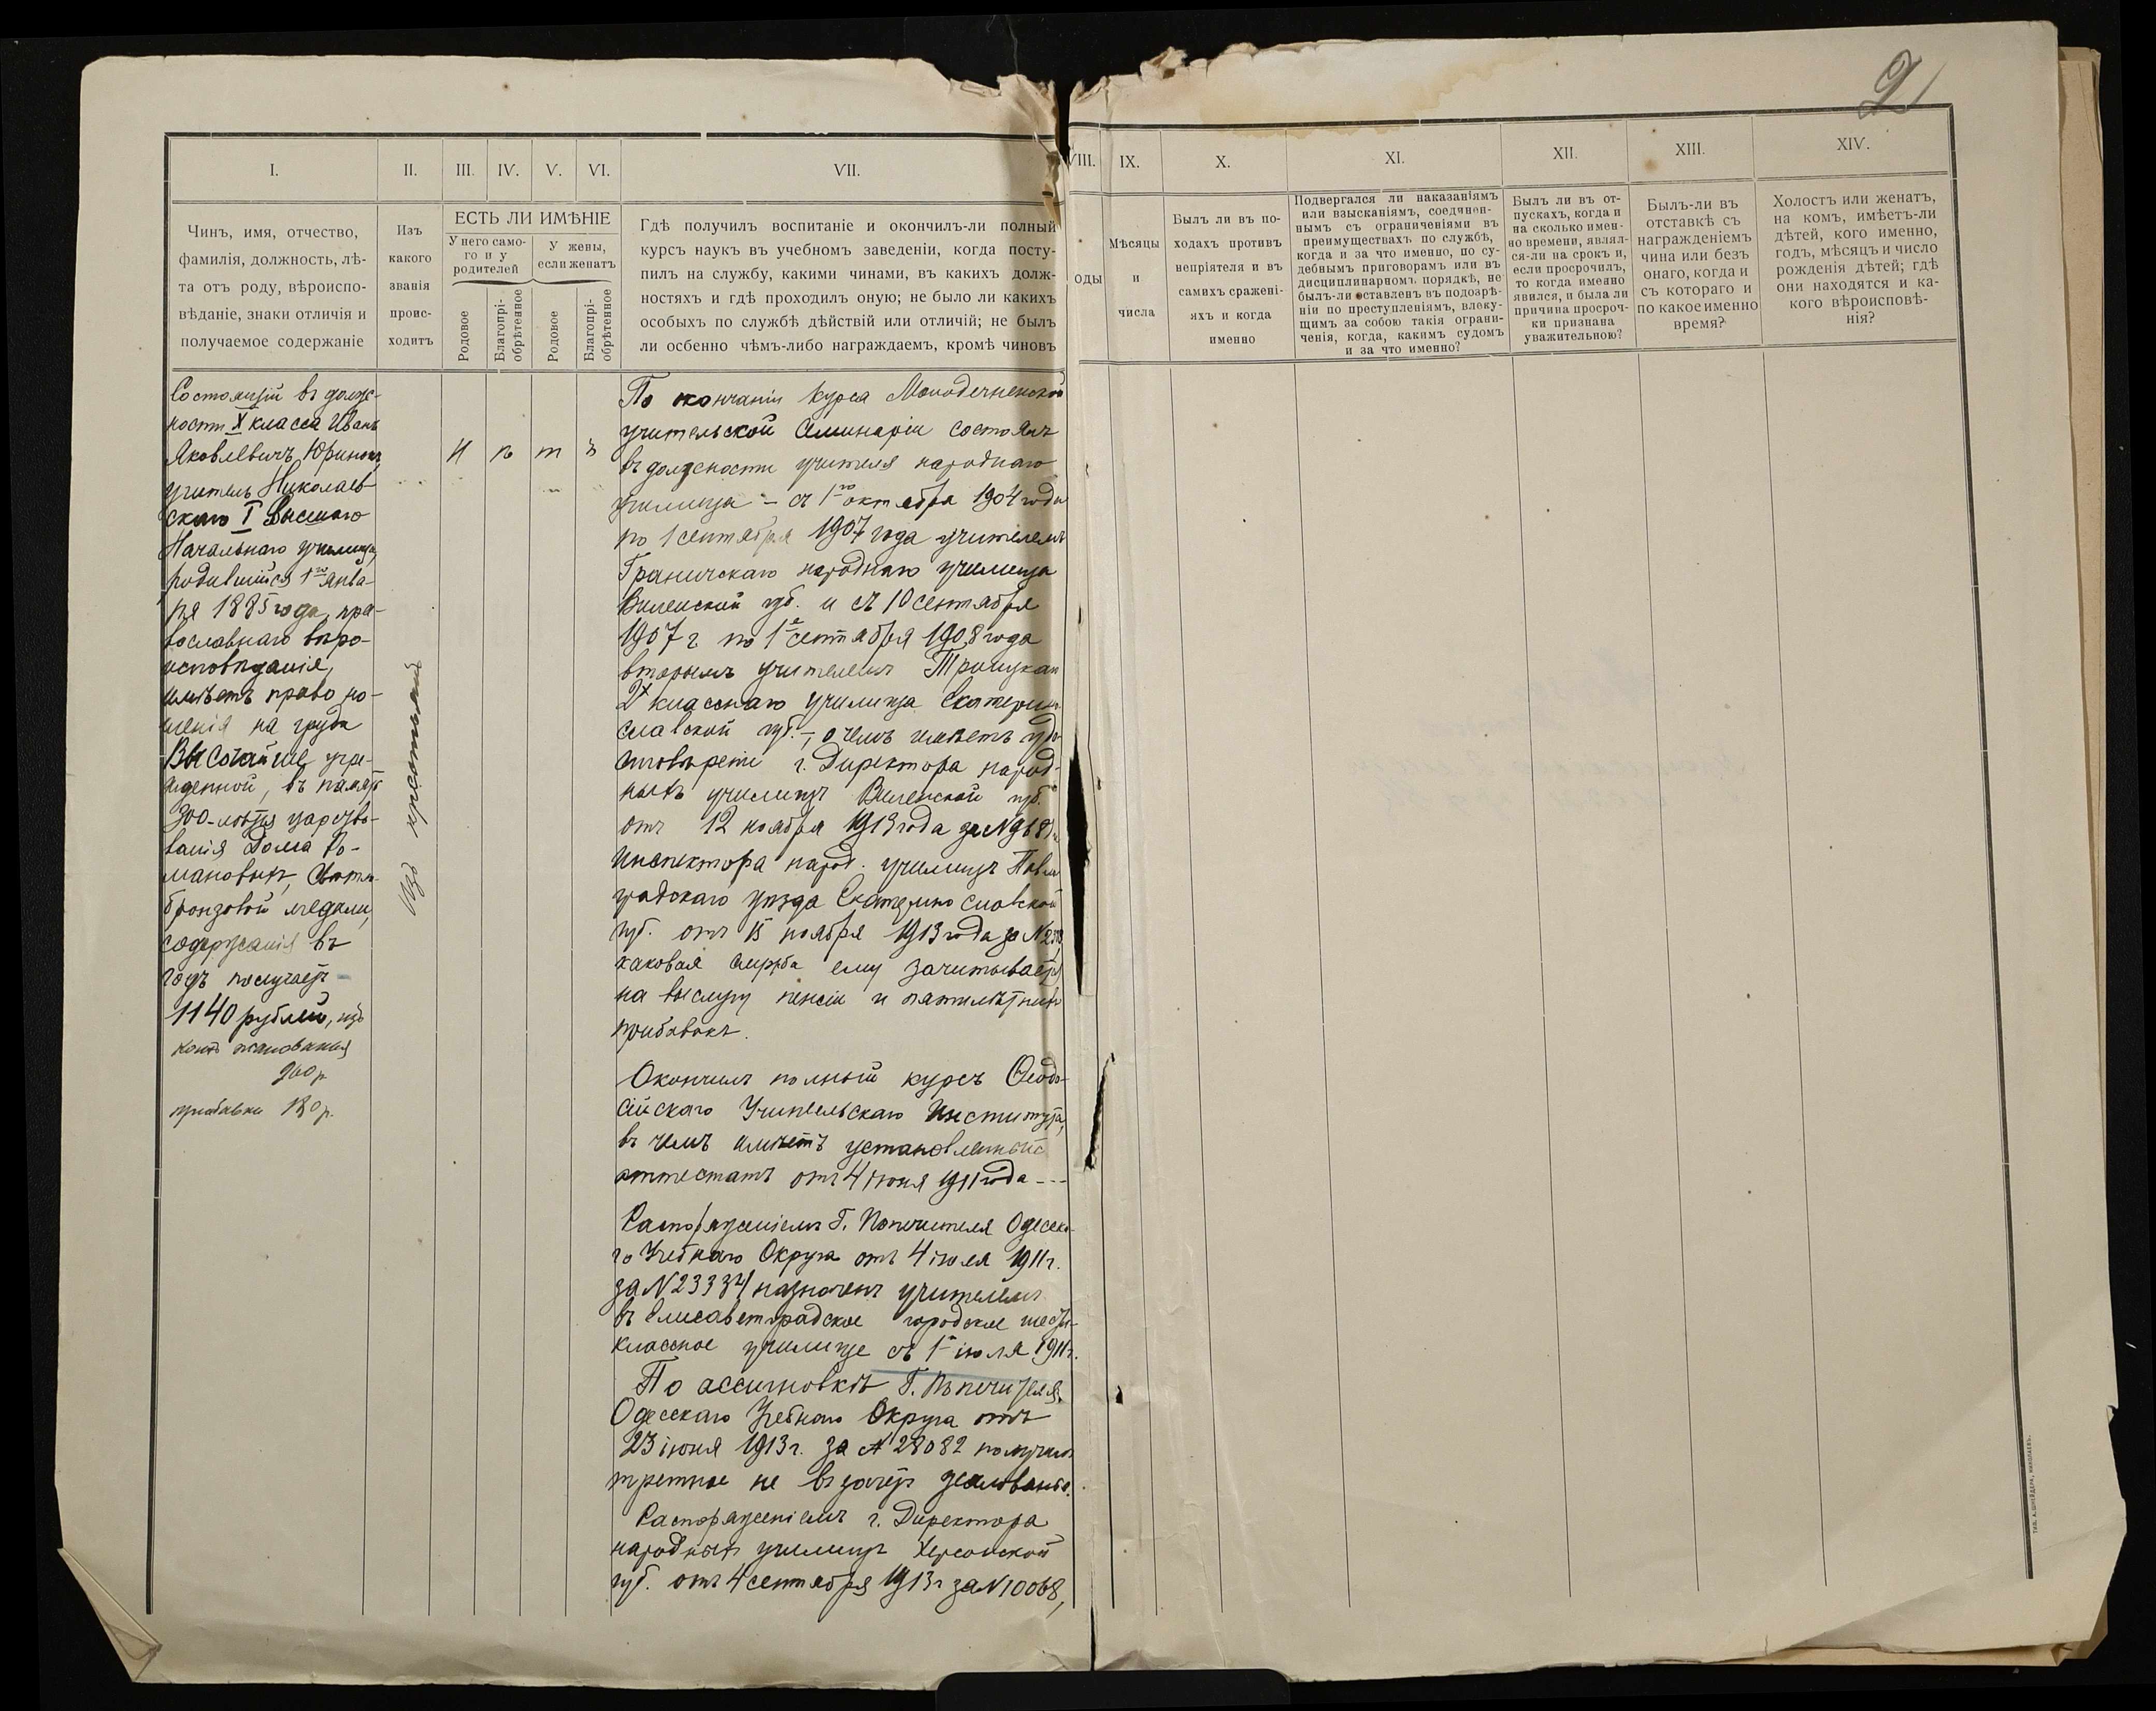 2
I.
II.
III.
IV.
V.
VI.
VII.
VIII.
IX.
X.
XI.
XII.
XIII.
XIV.
Чинъ, имя, отчество,
фамилія, должность, лѣ-
та отъ роду, вѣроиспо-
вѣданіе, знаки отличія и
получаемое содержаніе
Изъ
какого
званія
проис-
ходитъ
ЕСТЬ ЛИ ИМѢНІЕ
У него само-
го и у
родителей
У жены,
если женатъ
Родовое
Благопрі-
обрѣтенное
Родовое
Благопрі-
обрѣтенное
Гдѣ получилъ воспитаніе и окончилъ-ли полный
курсъ наукъ въ учебномъ заведеніи, когда посту-
пилъ на службу, какими чинами, въ какихъ долж-
ностяхъ и гдѣ проходилъ оную; не было ли какихъ
особыхъ по службѣ дѣйствій или отличій; не былъ
ли осбенно чѣмъ-либо награждаемъ, кромѣ чиновъ
оды
Мѣсяцы
и
числа
Былъ ли въ по-
ходахъ противъ
непріятеля и въ
самихъ сражені-
яхъ и когда
именно
Подвергался ли наказаніямъ
или взысканіямъ, соединен-
нымъ съ ограниченіями въ
преимуществахъ по службѣ,
когда и за что именно, по су-
дебнымъ приговорамъ или въ
дисциплинарномъ порядкѣ, не
былъ-ли оставленъ въ подозрѣ-
ніи по преступленіямъ, влеку-
щимъ за собою такія ограни-
ченія, когда, какимъ судомъ
и за что именно?
Былъ ли въ от-
пускахъ, когда и
на сколько имен-
но времени, являл-
ся-ли на срокъ и,
если просрочилъ,
то когда именно
явился, и была ли
причина просроч-
ки признана
уважительною?
Былъ-ли въ
отставкѣ съ
награжденіемъ
чина или безъ
онаго, когда и
съ котораго и
по какое именно
время?
Холостъ или женатъ,
на комъ, имѣетъ-ли
дѣтей, кого именно,
годъ, мѣсяцъ и число
рожденія дѣтей; гдѣ
они находятся и ка-
кого вѣроисповѣ-
нія?
Состоящій въ долж-
ности X класса Иванъ
Яковлевичъ Юринокъ,
учитель Николаев-
скаго I Высшаго
Начальнаго училища,
родившійся 1го янва-
ря 1885 года, пра-
вославнаго вѣро-
исповѣданія,
имѣетъ право но-
шенія на груди
Высочайше учре-
жденной, въ память
300-лѣтія царство-
ванія Дома Ро-
мановыхъ, свѣтло-
бронзовой медали,
содержанія въ
годъ получаетъ
1140 рублей, изъ
коихъ жалованья
960 р.
прибавки 180 р.
Изъ крестьянъ
Н ѣ т ъ
По окончаніи курса Молодечненской
учительской Семинаріи состоялъ
въ должности учителя народнаго
училища – съ 1го октября 1904 года
по 1 сентября 1907 года учителемъ
Граничскаго народнаго училища
Виленской губ. и съ 10 сентября
1907 г. по 1е сентября 1908 года
вторымъ учителемъ Троицкаго
2х класснаго училища Екатерино
славской губ. –, о чемъ имѣетъ удо-
стовѣреніи г. Директора народ-
ныхъ училищъ Виленской губ.
отъ 12 ноября 1913 года за №
Инспектора народ. училищъ Павло
градскаго уѣзда Екатеринославской
губ. отъ 15 ноября 1913 года за №
каковая служба ему зачитывается
на выслугу пенсіи и пятилѣтнихъ
прибавокъ.
Окончилъ полный курсъ Ѳеодо-
сійскаго Учительскаго Института,
въ чемъ имѣетъ установленный
аттестатъ отъ 4 іюня 1911 года - - -
Распоряженіемъ Г. Попечителя Одесска-
го Учебнаго Округа отъ 4 іюля 1911 г.
за № 23334 назначенъ учителемъ
въ Елисаветградское городское шести-
классное училище съ 1го іюля 1911 г.
По ассигновкѣ Г. Попечителя
Одесскаго Учебнаго Округа отъ
23 іюня 1913 г. за № 28082 получилъ
третное не въ зачетъ жалованье.
Распоряженіемъ г. Директора
народныхъ училищъ Херсонской
губ. отъ 4 сентября 1913 г за № 10068,
ТИП. А. ШНЕЙДЕРА, НИКОЛАЕВЪ.